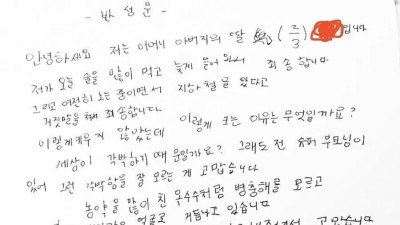 - 반성문 -
안녕하세요 저는 어머니 아버지의 딸 (2/3) 입니다
제가 오늘 술을 많이 먹고 늦게 들어와서 죄송합니다
그리고 여전히 노는 중이면서 지하철을 왔다고
거짓말을 해 죄송합니다.
이렇게 키우지 않았는데 이렇게 크는 이유는 무엇일까요?
세상이 각박하기 때문일까요? 그래도 전 슈퍼 부모님이
있어 그런 각박함을 잘 모르는 게 고맙습니다
농약을 많이 친 옥수수처럼 병충해를 모르고
얼굴로 거듭나고 있습니다
고맙습니다